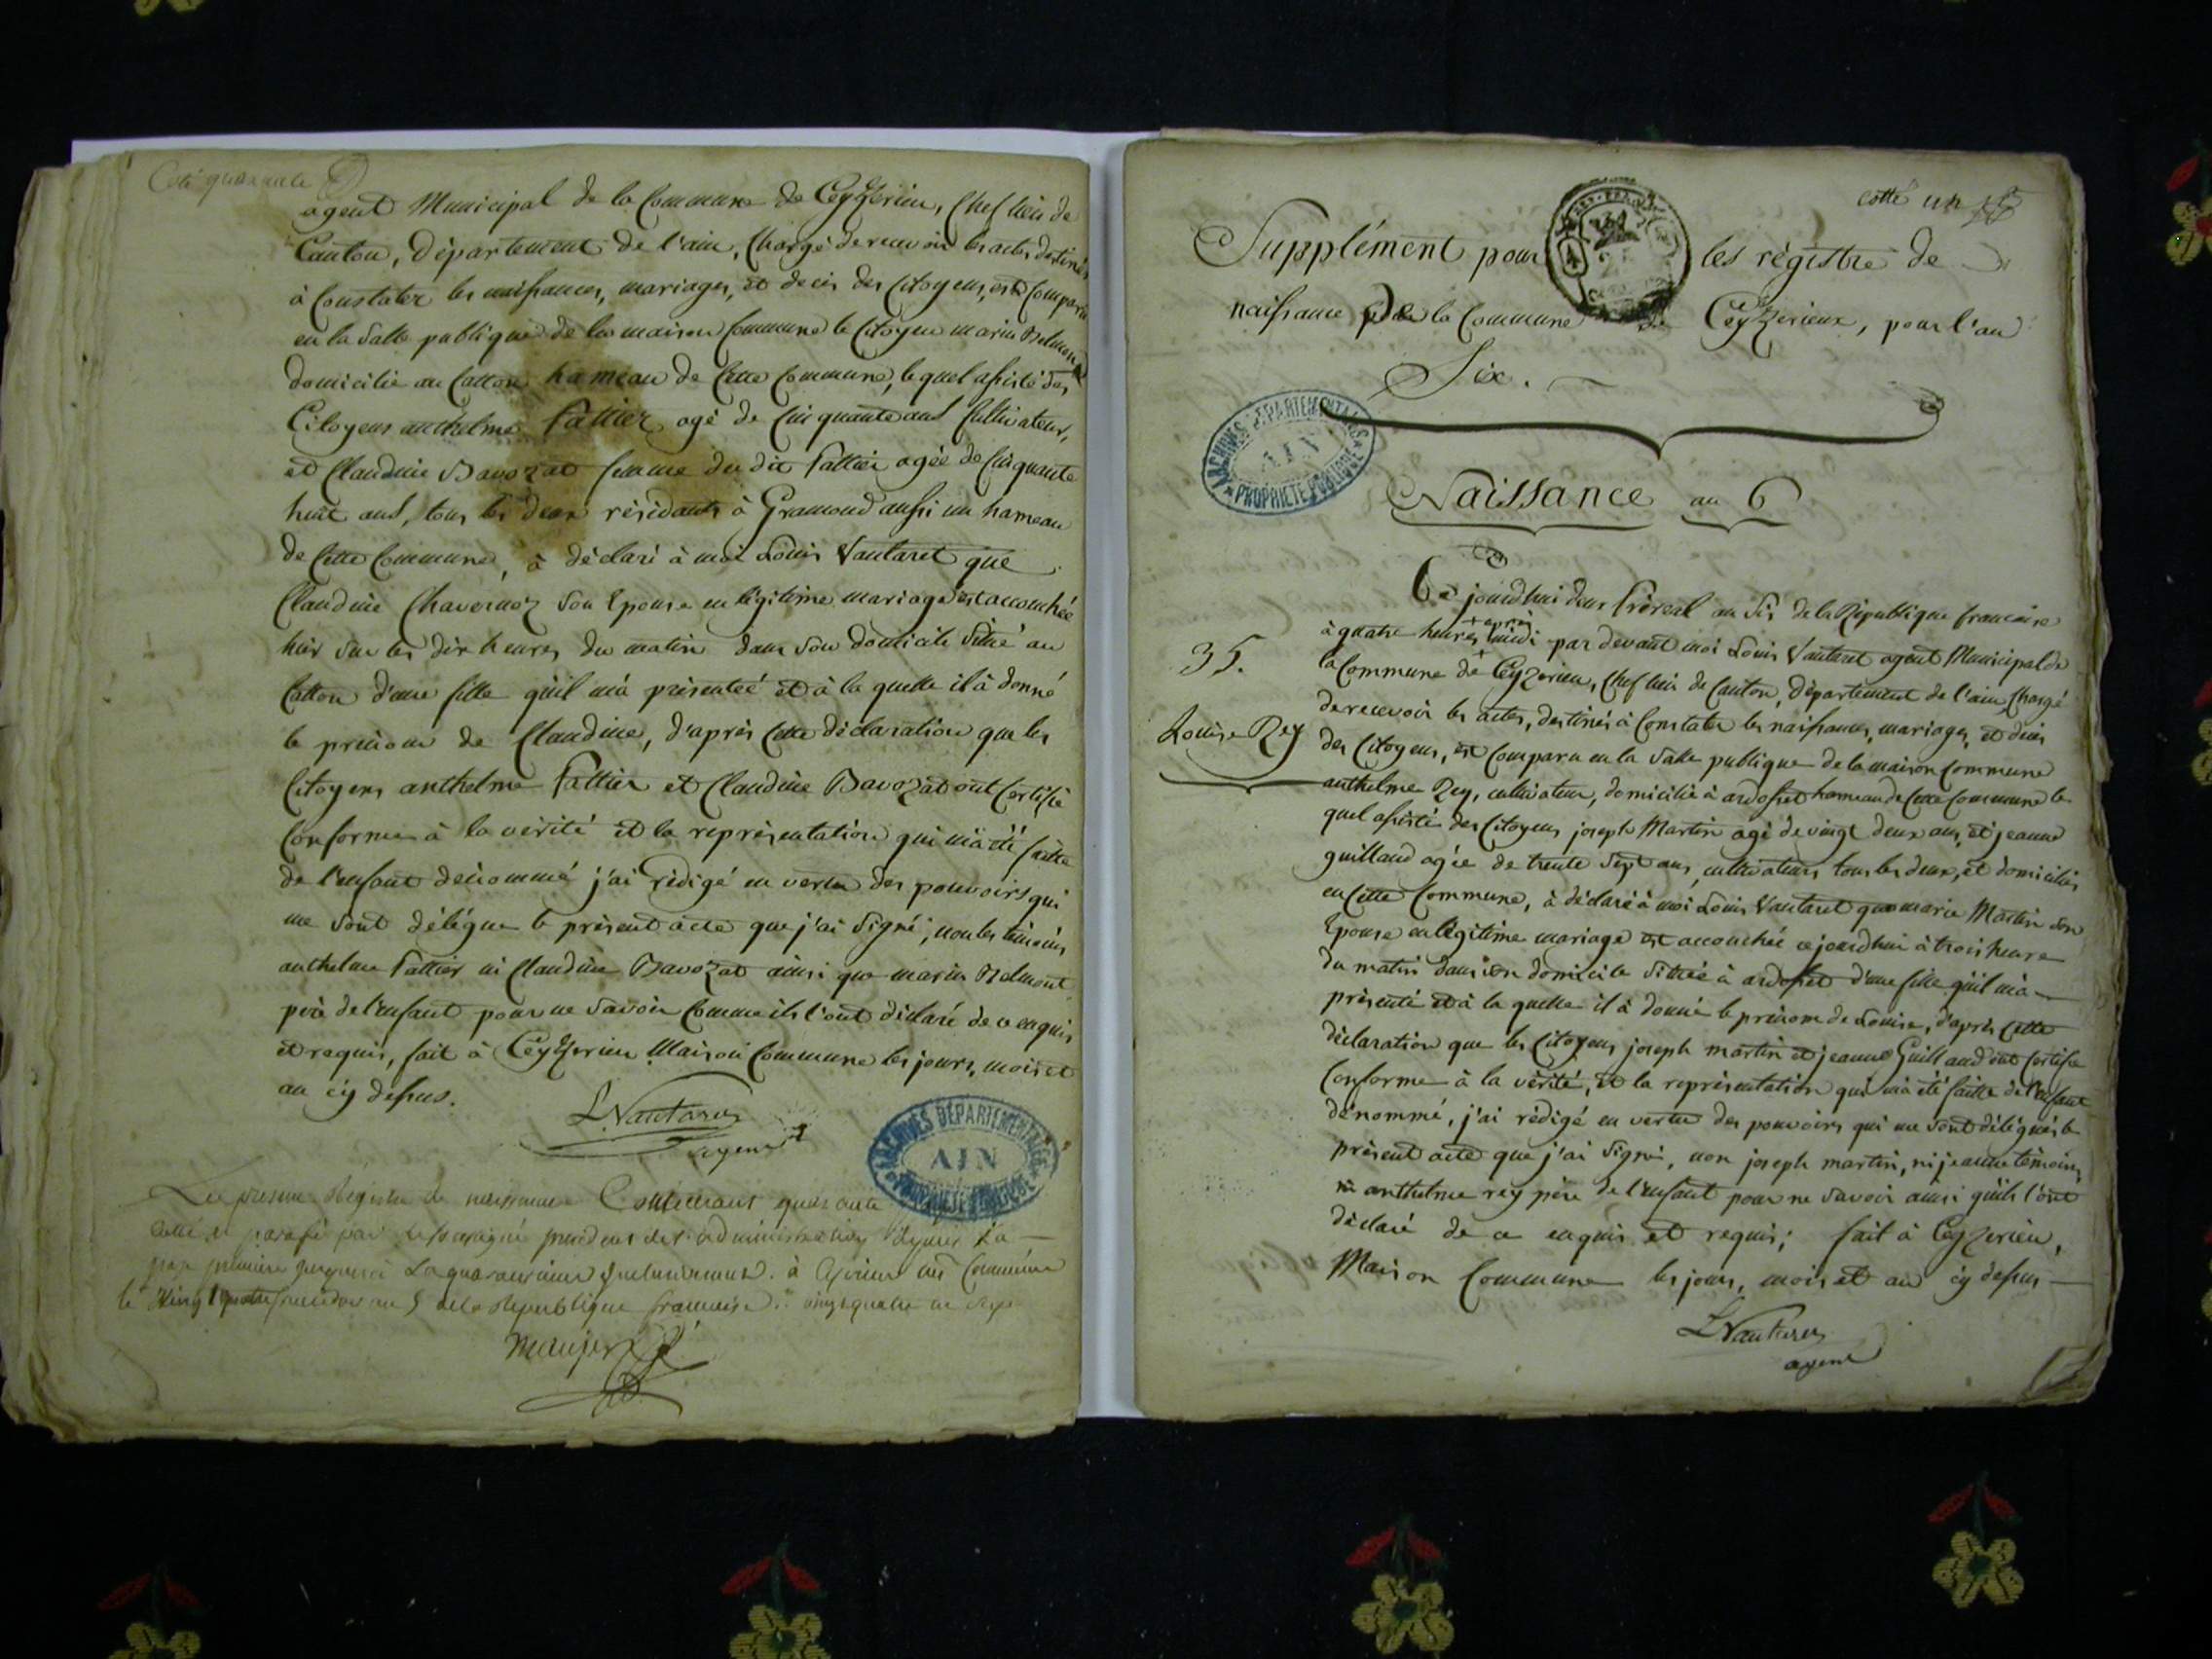 Coté quarante
agent Municipal de la Commune de Ceyzerieu, Chef lieu de
Canton, département de l'ain, Chargé de recevoir les actes destinés
à Constater les naissances, mariages, et deces des Citoyens, est Comparu
en la Salle publique de la maison Commune le Citoyen marin Belmont
domicilié au Catton hameau de Cette Commune, lequel assisté des
Citoyens anthelme fattier agé de Cinquante ans Cultivateur,
et Claudine Bavozat femme du dit fattier agée de Cinquante
huit ans, tous les deux résidants à Gramond aussi un hameau
de Cette Commune, à déclaré à moi Louis Vautaret que
Claudine Chavernoz Son Epouse en légitime mariage est accouchée
hier Sur les dix heures du matin dans Son domicile Situé au
Catton d'une fille qu'il m'à présenteé et à la quelle il à donné
le prénom de Claudine, d'après Cette déclaration que les
Citoyens anthelme fattier et Claudine Bavozat ont Certifié
Conforme à la vérité et la représentation qui m'à été faitte
de l'enfant dénommé j'ai rédigé en vertu des pouvoirs qui
me Sont délégué le présent acte que j'ai Signé, non les témoins
anthelme fattier ni Claudine Bavozat ainsi que marin Belmont
père de l'enfant pour ne Savoir Comme ils l'ont déclaré de ce enquis
et requis, fait à Ceyzerieu Maison Commune les jours, mois et
an cy dessus.
LVautaret
agent
Le présent Registre de naissance Contenant quarante
cotté et parafé par le soussigné président de l'administration depuis la
page première jusques à la quarantième inclusivement. à Ceyzerieu Commune
le vingt quatre fructidor an 5 de la République française
cotté un
Supplément pour les régistre de
naissance de la Commune de Ceyzerieux, pour l'an
Six.
ARCHIVES DÉPARTEMENTALES
AIN
PROPRIÉTÉ PUBLIQUE
Naissance an 6
35.
Louise Rey
Ce jourdhui deux floréal an Six de la République française
à quatre heures après midi par devant moi Louis Vautaret agent Municipal de
la Commune de Ceyzerieu, Chef lieu de Canton, département de l'ain, Chargé
de recevoir les actes, destinés à Constater les naissances, mariages, et deces
des Citoyens, est Comparu en la Salle publique de la maison Commune
anthelme Rey, cultivateur, domicilié à ardosset hameau de Cette Commune le
quel assisté des Citoyens joseph Martin agé de vingt deux ans, et jeanne
guilland agée de trente Sept ans, cultivateurs tous les deux, et domiciliés
en Cette Commune, à déclaré à moi Louis Vautaret que marie Martin Son
Epouse en légitime mariage est accouchée ce jourdhui à trois heure
du matin dans Son domicile Situé à ardosset d'une fille qu'il m'à
présenté et à la quelle il à donné le prénom de Louise, d'après Cette
déclaration que les Citoyens joseph martin et jeanne Guilland ont Certifié
Conforme à la vérité, et la représentation qui m'à été faitte de l'enfant
dénommé, j'ai rédigé en vertu des pouvoirs qui me Sont délégués le
présent acte que j'ai Signé, non joseph martin, ni jeanne témoins,
ni anthelme rey père de l'enfant pour ne Savoir ainsi qu'ils l'ont
déclaré de ce enquis et requis; fait à Ceyzerieu,
Maison Commune les jours, mois et an cy dessus
LVautaret
agent
ARCHIVES DÉPARTEMENTALES
AIN
PROPRIÉTÉ PUBLIQUE